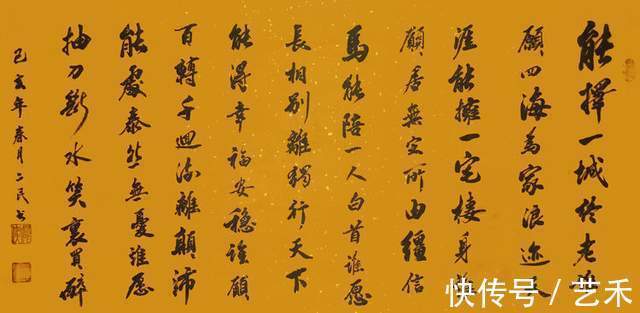 能擇一城終老誰
願四海為家浪迹天
涯能擁一宅棲身誰
願居無定所由繮信
馬能陪一人白首誰愿
長相別離獨行天下
能得幸福安穩誰願
百轉千迴流離顛沛
能處泰然無憂誰愿
抽刀斷水笑裏買醉
己亥年春月二民书
快传号 / 艺禾